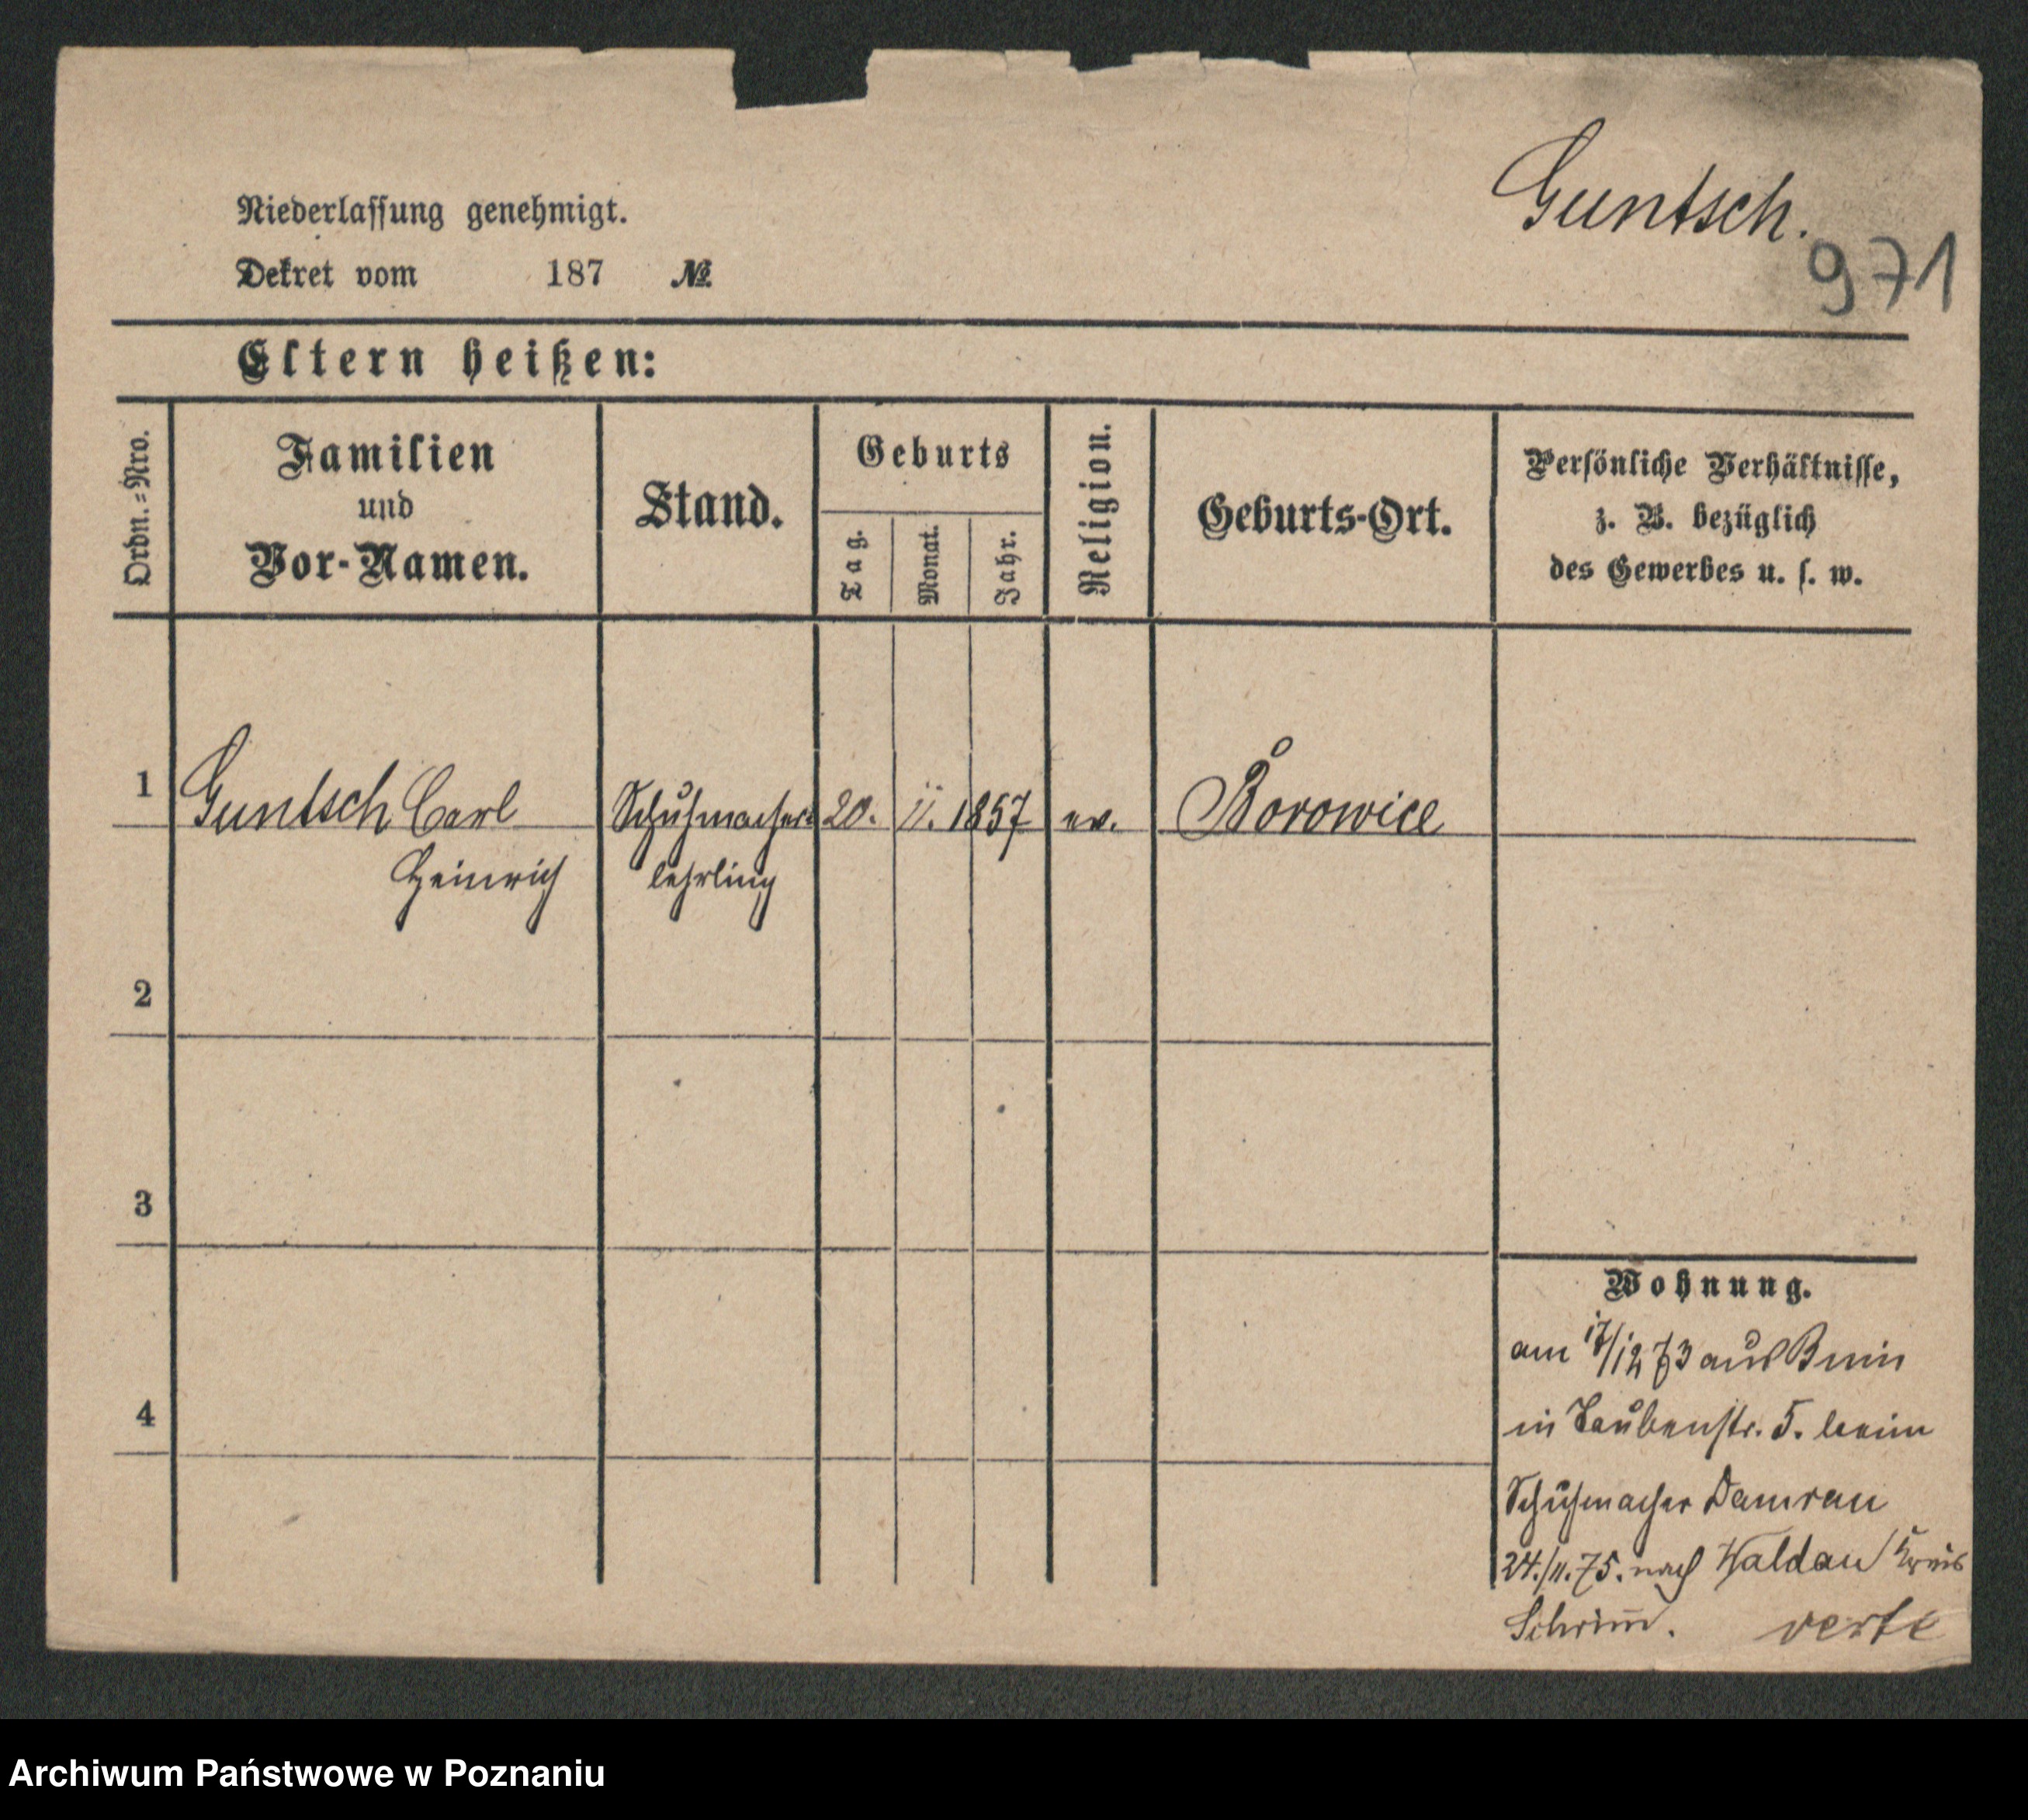 Guntsch.
971
Niederlassung genehmigt.
Dekret vom 187 №
Eltern heißen:
Ordn.=Nro.
Familien
und
Vor-Namen.
Stand.
Geburts
Tag.
Monat.
Jahr.
Religion.
Geburts-Ort.
Persönliche Verhältnisse,
z. B. bezüglich
des Gewerbes u. s. w.
1 Guntsch Carl Schuhmacher= 20. 11. 1857 ev. Borowice
Heinrich lehrling
2
3
4
Wohnung.
am 17/12 73 aus Bnin
in Taubenstr. 5. beim
Schuhmacher Damrau
24./11.75. nach Waldau Kreis
Schrim̄. verte
Archiwum Państwowe w Poznaniu